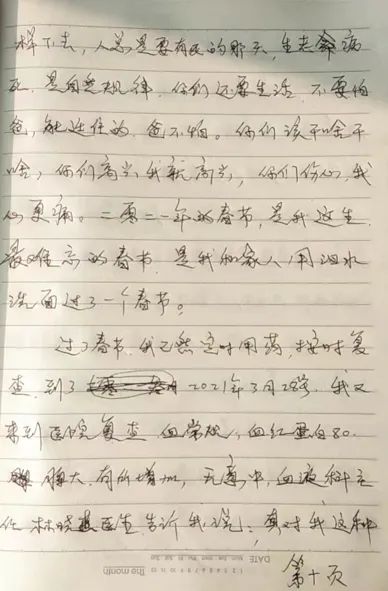 样下去，人总是要有死的那天，生老命病
死，是自然规律，你们还要生活，不要怕
爸，能延住的，爸不怕。你们该干啥干
啥，你们高兴我就高兴，你们伤心，我
心更痛。二零二一年的春节，是我这生
最难忘的春节，是我和家人用泪水
洗面过了一个春节。
过了春节，我仍然定时用药，按时复
查，到了2021年3月28号，我又
来到医院复查，血常规，血红蛋白80.
脾大，有所增加，无意中，血液科主
任林晓医生告诉我说：真对我这种
第十页
DATE
the month